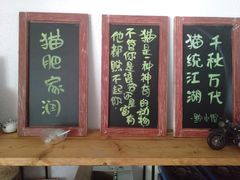 猫肥家润
猫是一种神奇的动物
不管你是贫穷还是富有
他都瞧不起你
千秋万代
猫统江湖